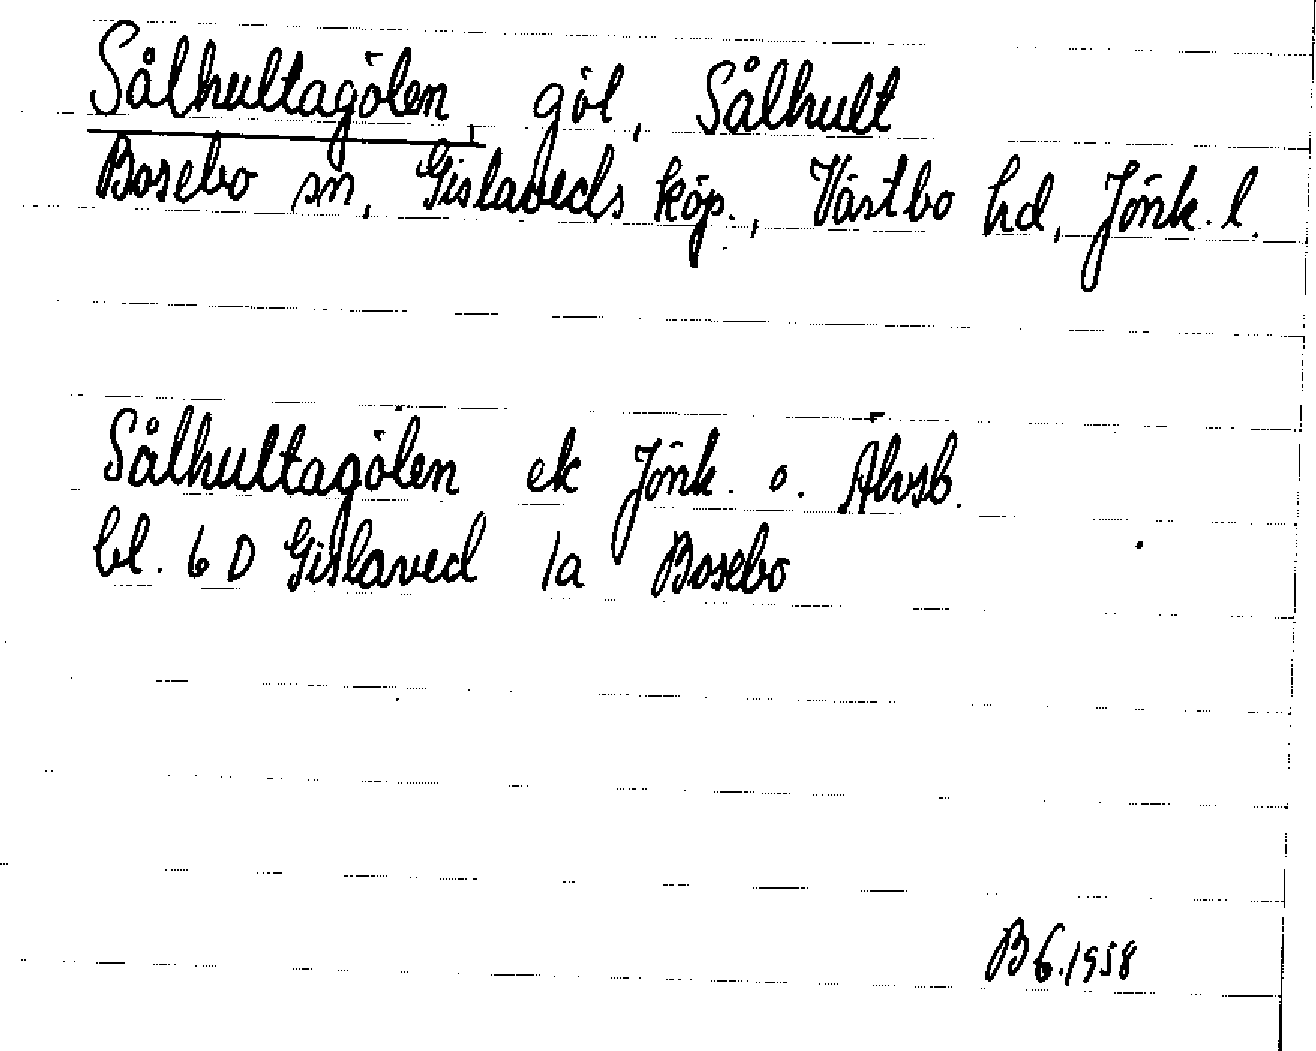 Sålhultagölen, göl, Sålhult
Bosebo sn, Gislaveds köp., Västbo hd, Jönk. l.
Sålhultagölen ek Jönk. o. Älvsb.
bl. 6 D Gislaved 1a Bosebo
B 6.1958